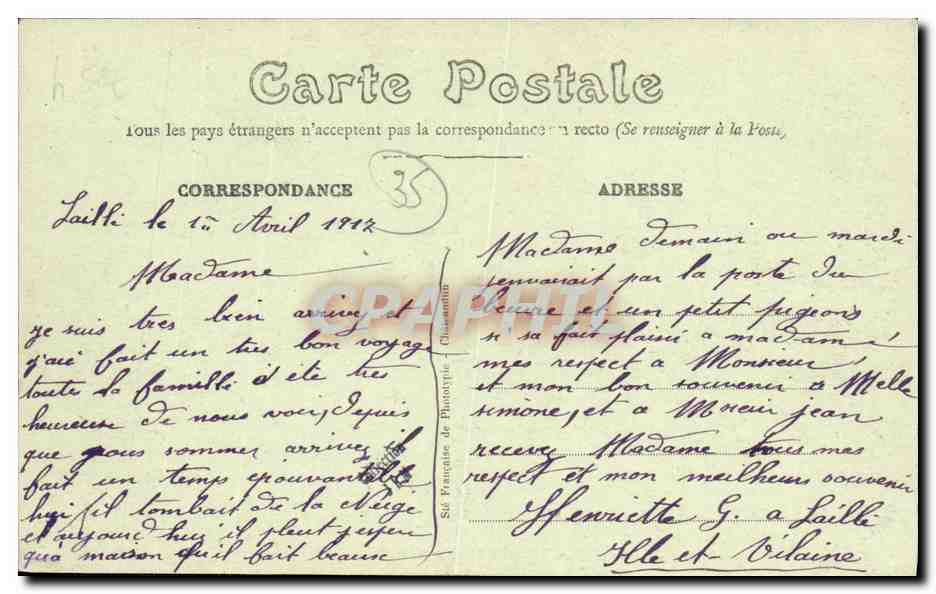 Carte Postale
Tous les pays étrangers n'acceptent pas la correspondance au recto (Se renseigner à la Poste)
CORRESPONDANCE
35
Lailli le 1er Avril 1912
Madame
je suis tres bien arrivez et
j'ai fait un tres bon voyage
toutes la famille à éte tres
heureuse de nous voir, depuis
que nous sommer arrivez il
fait un temps epouvantable
hui il tombait de la Neige
et aujourd hui il pleut
qu'à maison qu'il fait beause
Sté Française de Phototypie
ADRESSE
Madame demain ou mardi
j'envairait par la poste du
beurre et un petit pigeons
si sa fair plaisi a madame
mes respect a Monsieur
et mon bon souvenir a Melle
simone, et a Msieur jean
recevez Madame tous mes
respect et mon meilheurs souvenir
Henriette G. a Lailli
Ille et Vilaine
CPAPHIL